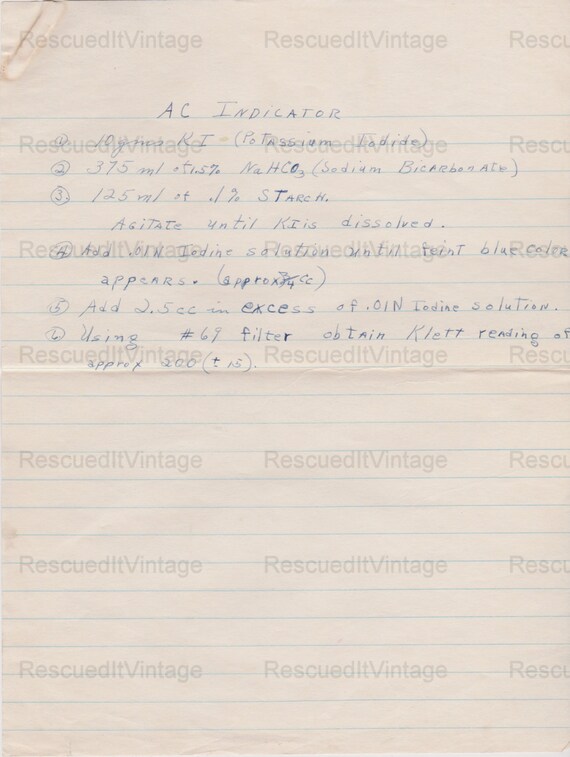 AC INDICATOR
① 10 gms KI (Potassium Iodide)
② 375 ml of 1.5% NaHCO₃ (Sodium Bicarbonate)
③ 125 ml of .1% STARCH.
AGITATE until KI is dissolved.
④ Add .01N Iodine solution until faint blue color
appears. (approx cc)
⑤ Add 2.5cc in excess of .01N Iodine solution.
⑥ Using #69 filter obtain Klett reading of
approx 200 (± 15).
RescuedItVintage RescuedItVintage Rescu
RescuedItVintage RescuedItVintage Rescu
RescuedItVintage RescuedItVintage Rescu
RescuedItVintage RescuedItVintage Rescu
RescuedItVintage RescuedItVintage Rescu
RescuedItVintage RescuedItVintage Rescu
RescuedItVintage RescuedItVintage Rescu